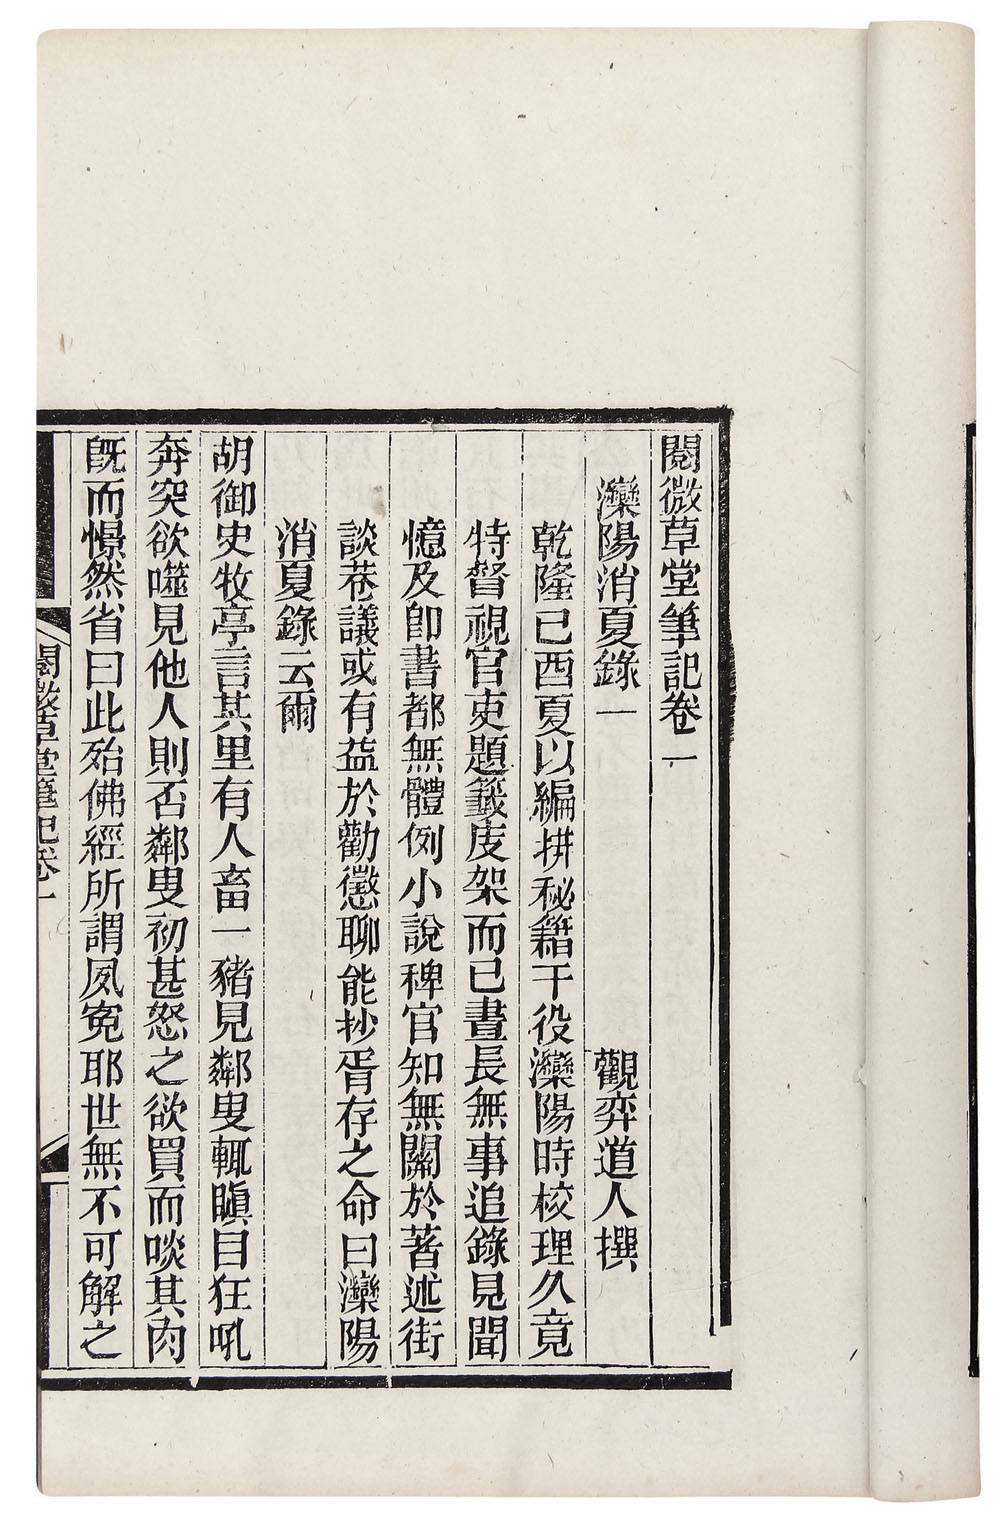 閱微草堂筆記卷一
灤陽消夏錄一 觀弈道人撰
乾隆己酉夏以編排秘籍于役灤陽時校理久竟
特督視官吏題籤庋架而已晝長無事追錄見聞
憶及卽書都無體例小說稗官知無關於著述街
談巷議或有益於勸懲聊能抄胥存之命曰灤陽
消夏錄云爾
胡御史牧亭言其里有人畜一豬見鄰叟輒瞋目狂吼
奔突欲噬見他人則否鄰叟初甚怒之欲買而啖其肉
旣而憬然省曰此殆佛經所謂夙冤耶世無不可解之
閱微草堂筆記卷一